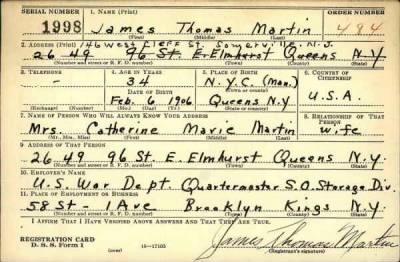 SERIAL NUMBER 1. NAME (Print) ORDER NUMBER
1998 James Thomas Martin 484
(First) (Middle) (Last)
2. ADDRESS (Print) 146 West St. Somerville N.J.
26-49 96 St. E. Elmhurst Queens N.Y
(Number and street or R. F. D. number) (Town) (County) (State)
3. TELEPHONE 4. AGE IN YEARS 5. PLACE OF BIRTH 6. COUNTRY OF CITIZENSHIP
— 34 N.Y.C. (Man.)
DATE OF BIRTH (Town or county)
Feb. 6, 1906 Queens N.Y U.S.A.
(Exchange) (Number) (Mo.) (Day) (Yr.) (State or country)
7. NAME OF PERSON WHO WILL ALWAYS KNOW YOUR ADDRESS 8. RELATIONSHIP OF THAT PERSON
Mrs. Catherine Marie Martin wife
(Mr., Mrs., Miss) (First) (Middle) (Last)
9. ADDRESS OF THAT PERSON
26-49 96 St. E. Elmhurst Queens N.Y.
(Number and street or R. F. D. number) (Town) (County) (State)
10. EMPLOYER'S NAME
U.S. War Dept. Quartermaster S.O. Storage Div.
11. PLACE OF EMPLOYMENT OR BUSINESS
58 St - 1 Ave Brooklyn Kings N.Y.
(Number and street or R. F. D. number) (Town) (County) (State)
I AFFIRM THAT I HAVE VERIFIED ABOVE ANSWERS AND THAT THEY ARE TRUE.
REGISTRATION CARD
D. S. S. Form 1 (over) 16—17105 James Thomas Martin
(Registrant's signature)